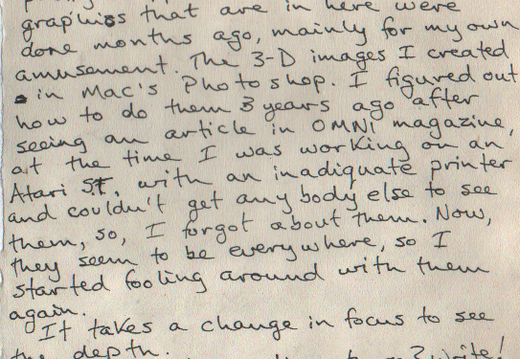 graphics that are in here were
done months ago, mainly for my own
amusement. The 3-D images I created
in Mac's Photoshop. I figured out
how to do them 3 years ago after
seeing an article in OMNI magazine,
at the time I was working on an
Atari ST, with an inadiquate printer
and couldn't get any body else to see
them, so, I forgot about them. Now,
they seem to be everywhere, so I
started fooling around with them
again.
It takes a change in focus to see
the depth.